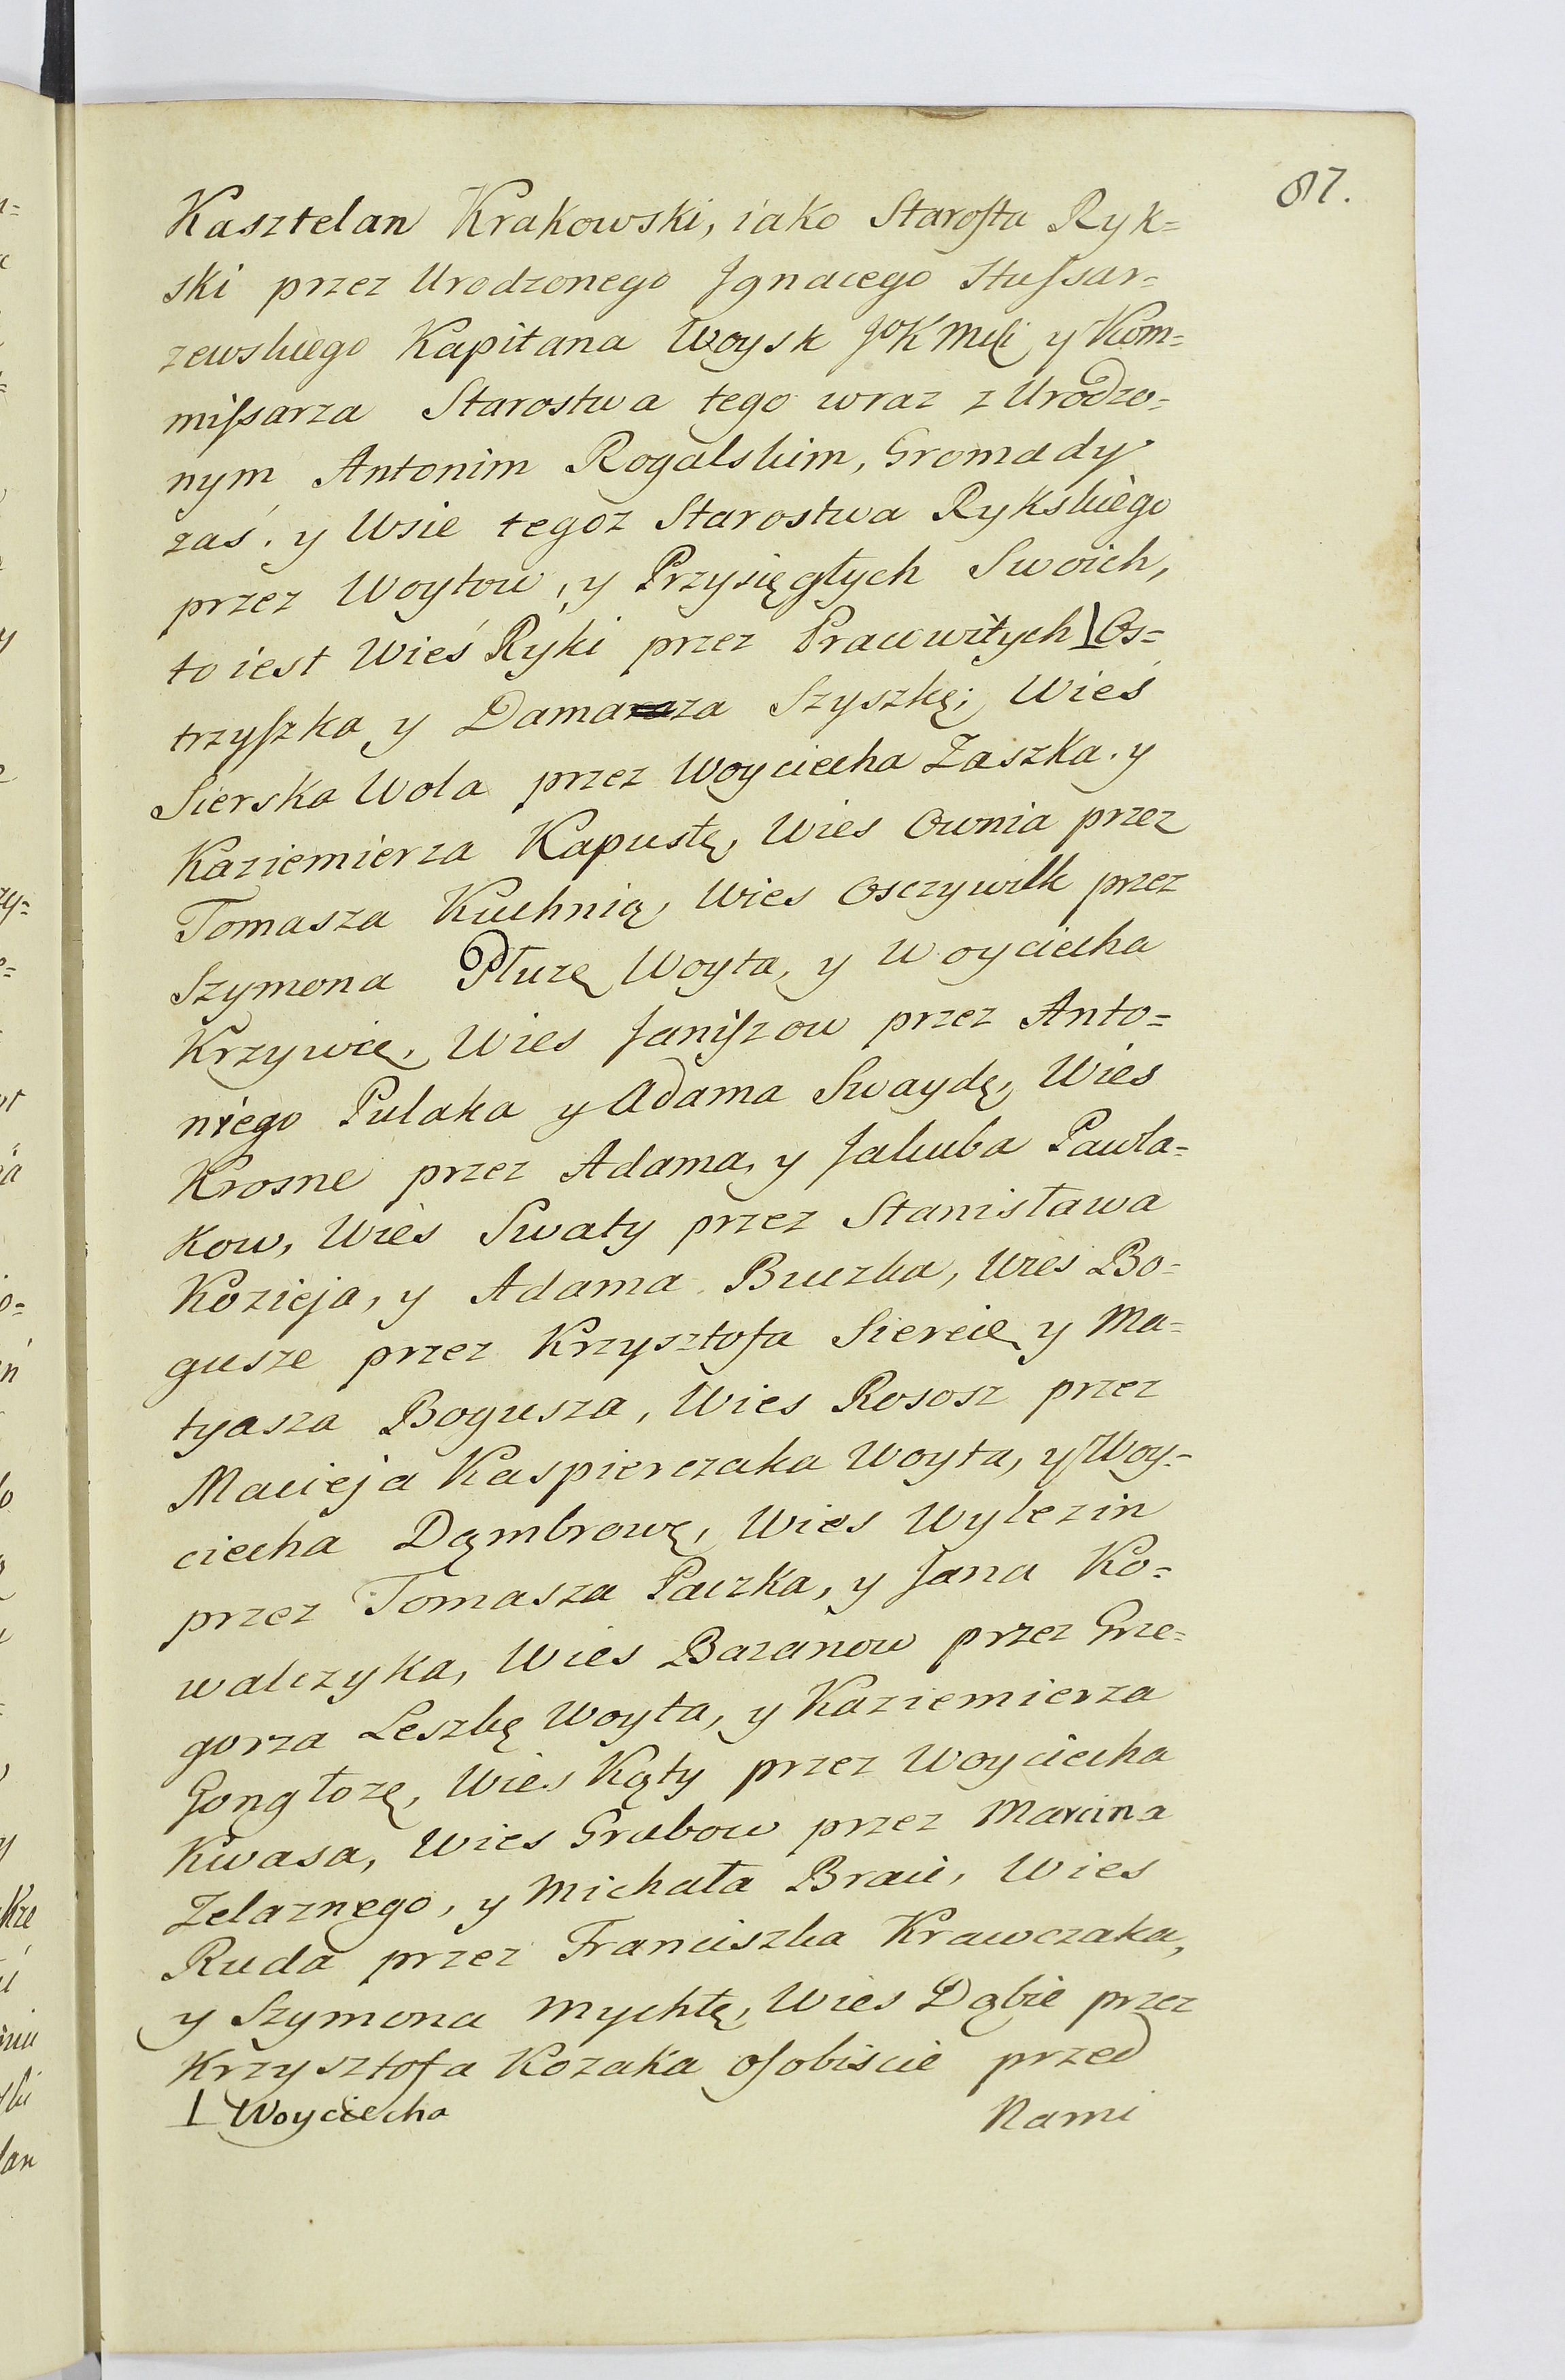 87.
Kasztelan Krakowski, iako Starosta Ryk=
ski przez Urodzonego Ignacego Hussar=
zewskiego Kapitana Woysk JoKMci y Kom=
missarza Starostwa tego wraz z Urodzo=
nym Antonim Rogalskim, Gromady
zaś. y Wsie tegoz Starostwa Rykskiego
przez Woytow, y Przysięgłych Swoich,
to iest Wieś Ryki przez Pracowitych ⊥ Os=
trzyszka y Damaza Szyszkę; Wieś
Sierska Wola przez Woyciecha Zaszka. y
Kaziemierza Kapustę, Wies Ownia przez
Tomasza Kuchnią, Wies Osczywilk przez
Szymona Płuzę Woyta, y Woyciecha
Krzywię, Wies Janiszow przez Anto=
niego Pulaka y Adama Swaydę, Wies
Krosne przez Adama, y Jakuba Pawla=
kow, Wies Swaty przez Stanisława
Kozieja, y Adama Buczka, Wies Bo=
gusze przez Krzysztofa Siercię y Ma=
tyasza Bogusza, Wies Rososz przez
Macieja Kaspierczaka Woyta, y Woy=
ciecha Dąmbrowę, Wies Wylezin
przez Tomasza Paczka, y Jana Ko=
walczyka, Wies Bazanow przez Grze=
gorza Leszkę Woyta, y Kaziemierza
Gongłozę, Wies Kąty przez Woyciecha
Kwasa, Wies Grabow przez Marcina
Zelaznego, y Michała Braci, Wies
Ruda przez Franciszka Krawczaka,
y Szymona Mychtę, Wies Dąbie przez
Krzysztofa Kozaka osobiscie przed
⊥ Woyciecha
Nami